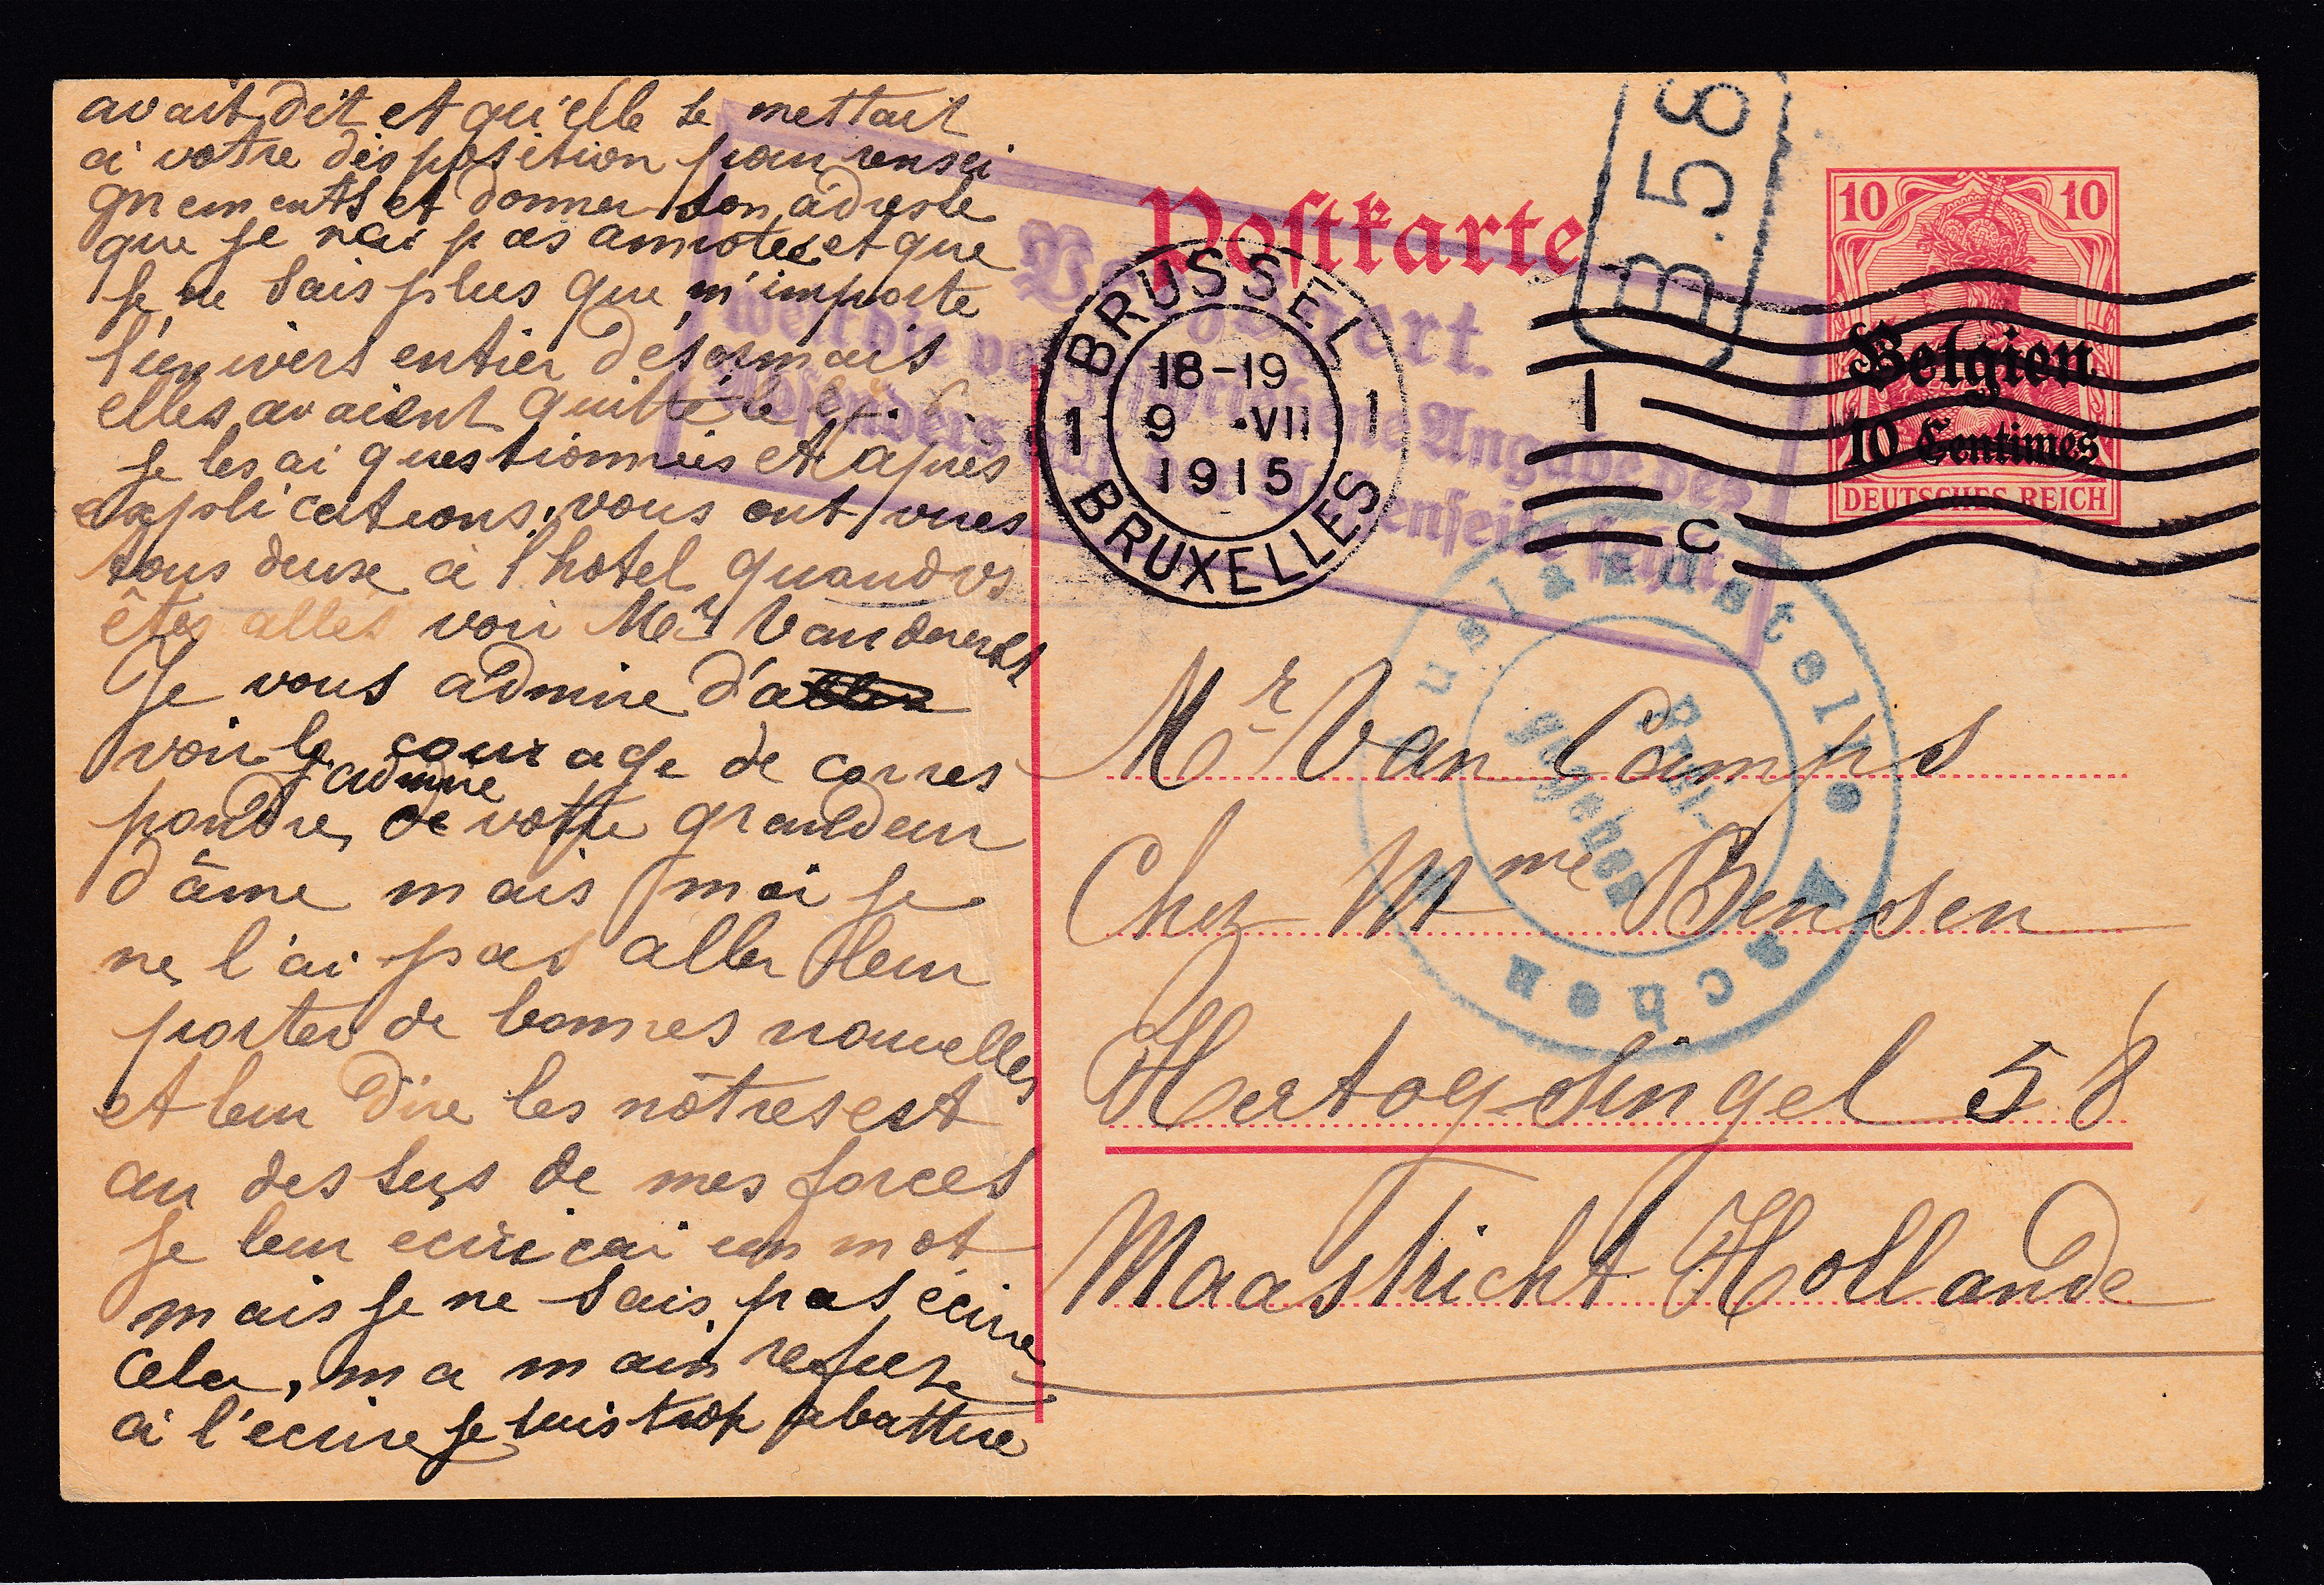 avait dit et qu'elle se mettait
à votre disposition pour rensei
gnements et donner son adresse
que je n'ai pas annotée et que
je ne sais plus que m'importe
l'univers entier désormais
elles avaient quitté le
je les ai questionnées et après
explications, vous ont vues
tous deux à l'hotel quand vs
êtes allés voir Mr
Je vous admire d'a
voir le courage de corres
pondre, j'admire de votre grandeur
d'âme mais moi je
ne l'ai pas aller leur
porter de bonnes nouvelles
et leur dire les nôtres est
au dessus de mes forces
je leur écrirai un mot
mais je ne sais pas écrire
cela, ma main refuse
à l'écrire je suis trop abattue
Postkarte
B.58
10 10
Belgien
10 Centimes
DEUTSCHES REICH
BRUSSEL
18-19
1 9 •VII 1
1915
BRUXELLES
1
C
weil die vorgeschriebene Angabe des
Absenders auf der Aussenseite fehlt.
Auslandstelle Aachen
Frei-
gegeben
Mr Van Camps
Chez Mme Bensen
Hertogsingel 58
Maastricht Hollande